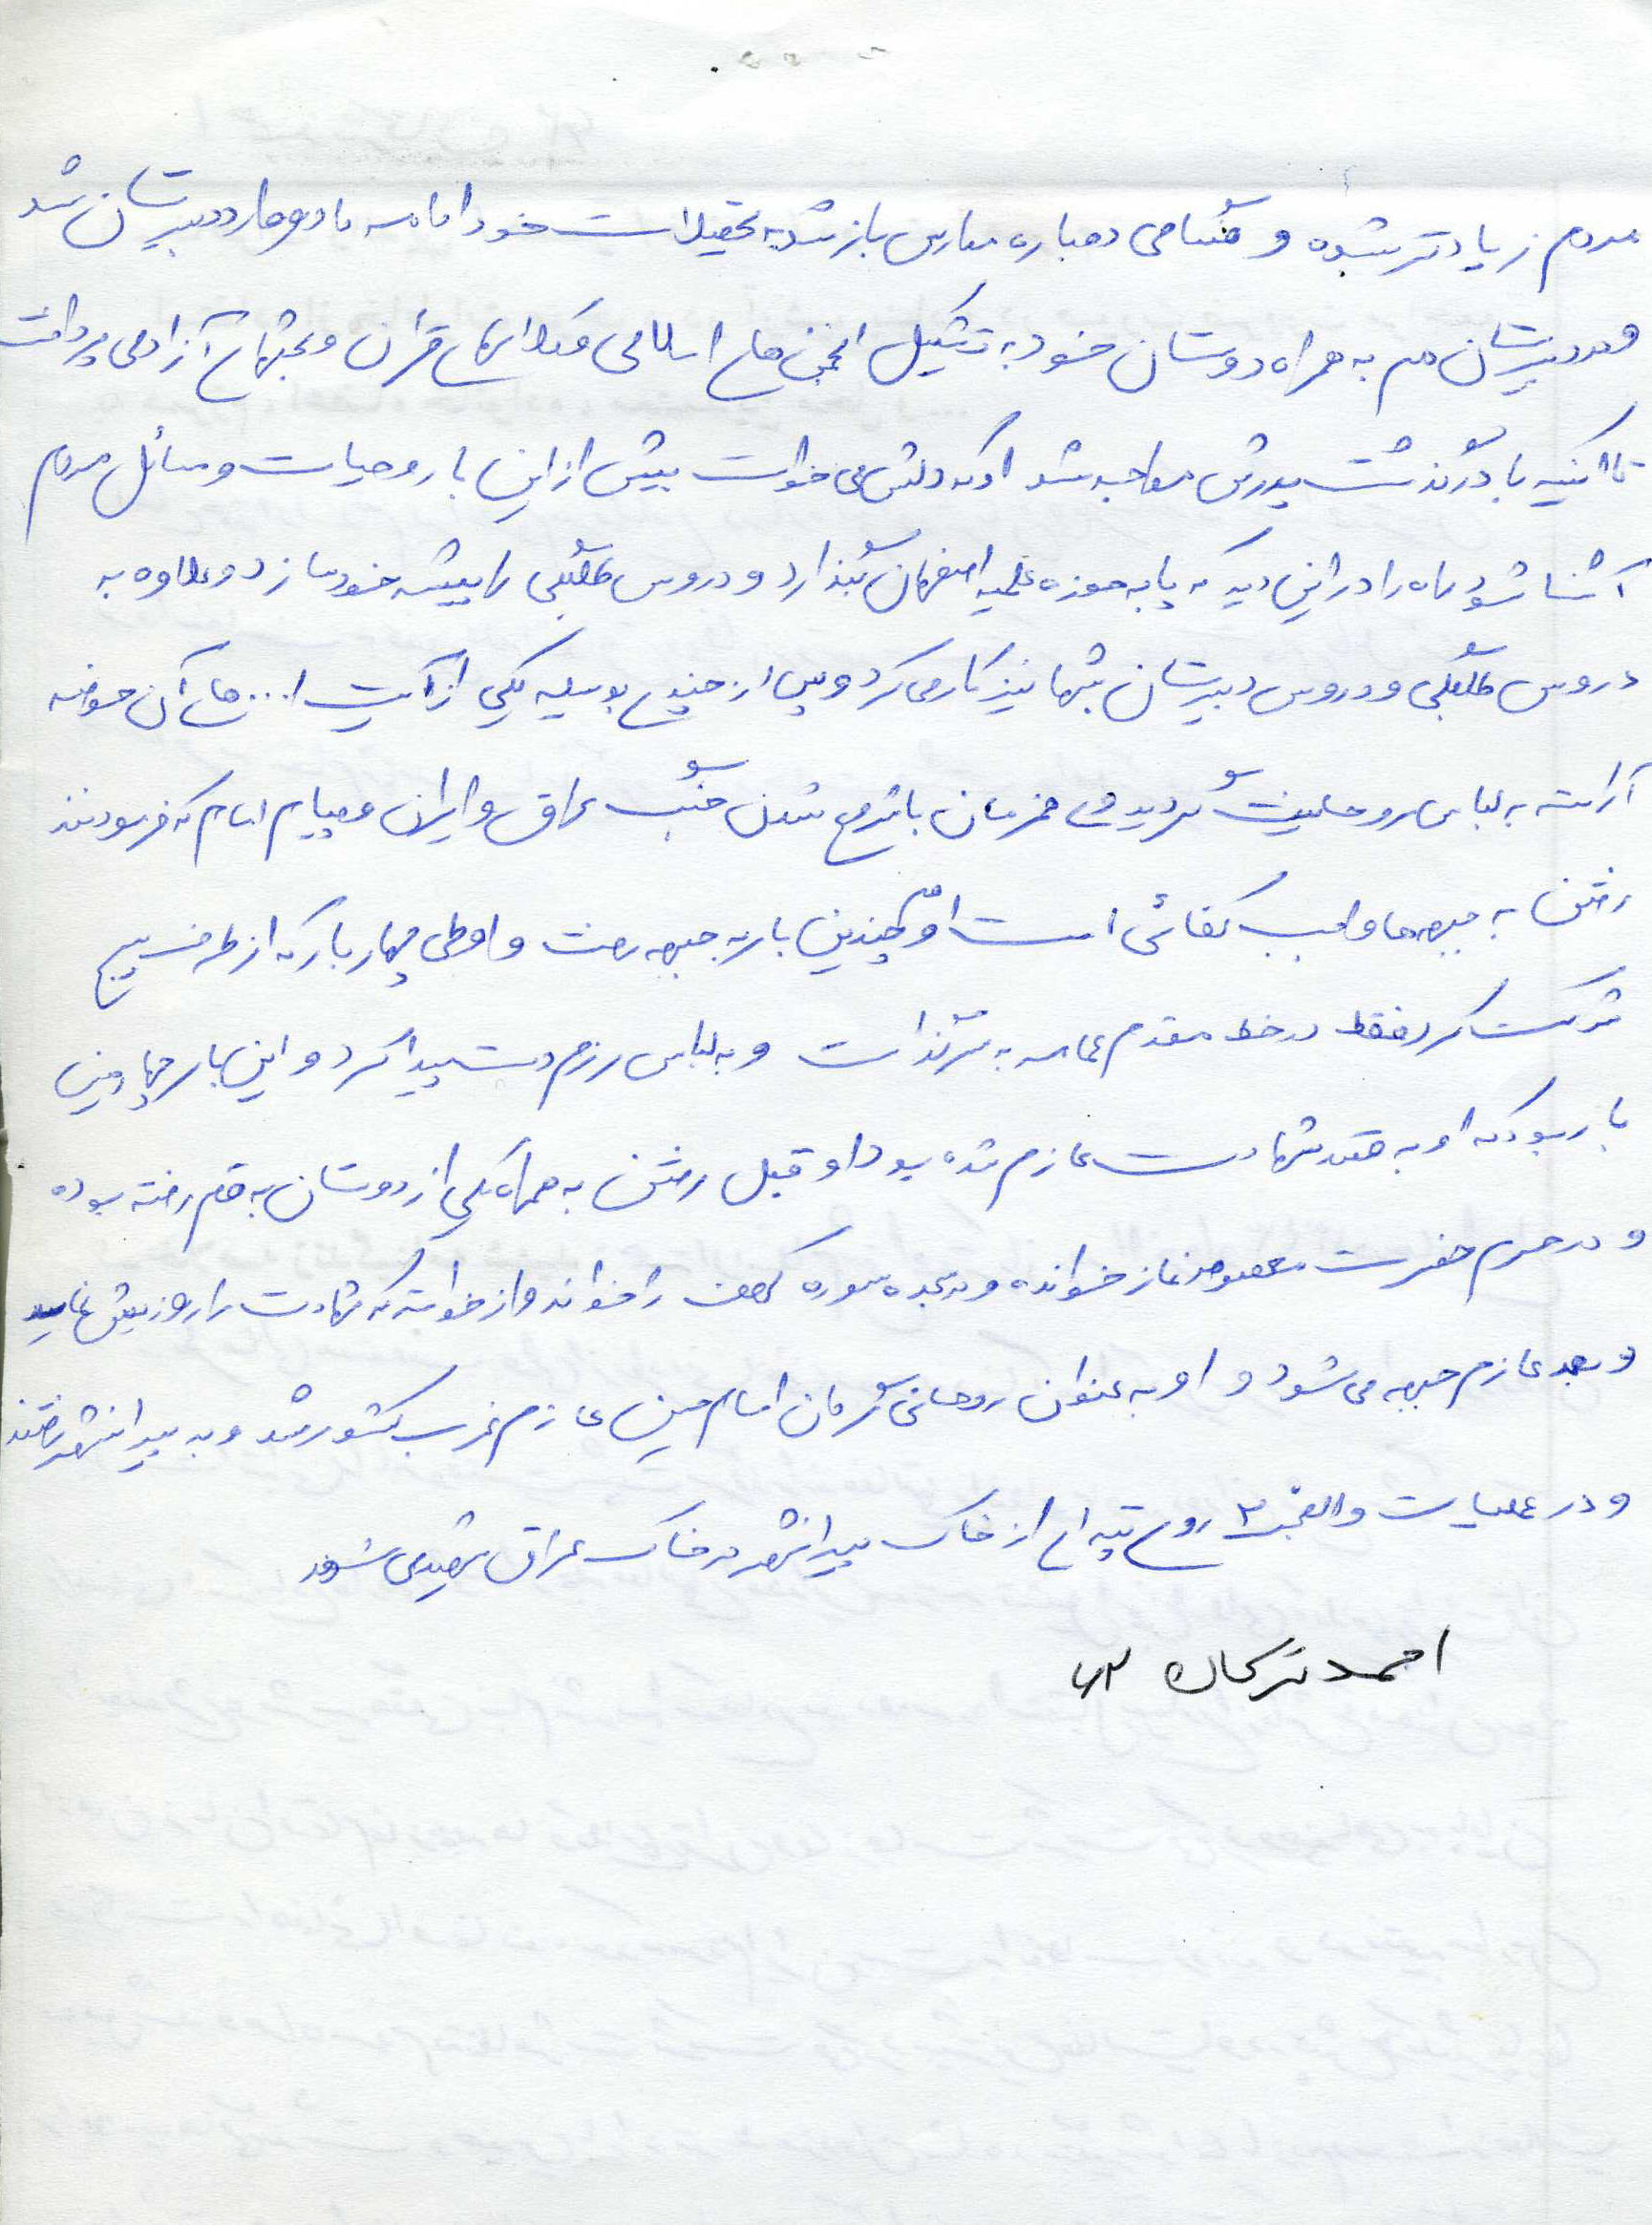 مردم زیادتر شده و هنگامی دوباره مدارس باز شد به تحصیلات خود ادامه داد و وارد دبیرستان شد
و در دبیرستان هم به همراه دوستان خود به تشکیل انجمن های اسلامی و کلاسهای قرآن و بحثهای آزاد می پرداخت
تا اینکه با درگذشت پدرش مواجه شد او که دلش می خواست بیش از این با روحیات و مسائل مردم
آشنا شود راه را در این دید که پا به حوزه علمیه اصفهان بگذارد و دروس طلبگی را پیشه خود سازد و علاوه به
دروس طلبگی و دروس دبیرستان شبها نیز کار می کرد و پس از چندی بوسیله یکی از آیت ا... های آن حوزه
آراسته به لباس روحانیت گردید و همزمان با شروع شدن جنگ عراق و ایران و پیام امام که فرمودند
رفتن به جبهه ها واجب کفائی است او هم چندین بار به جبهه رفت و او طی چهار بار که از طرف بسیج
شرکت کرد فقط در خط مقدم عمامه به سر نگذاشت و به لباس رزم دست پیدا کرد و این بار چهارمین
بار بود که او به قصد شهادت عازم شده بود او قبل رفتن به همراه یکی از دوستان به قم رفته بوده
و در حرم حضرت معصومه نماز خوانده و در سجده سوره کهف را خوانده و از خدا خواسته که شهادت را روزیش نماید
و بعد عازم جبهه می شود و او به عنوان روحانی گردان امام حسین عازم غرب کشور شد و به پیرانشهر رفتند
و در عملیات والفجر ۲ روی تپه ای از خاک پیرانشهر در خاک عراق شهید می شود
احمد ترکان